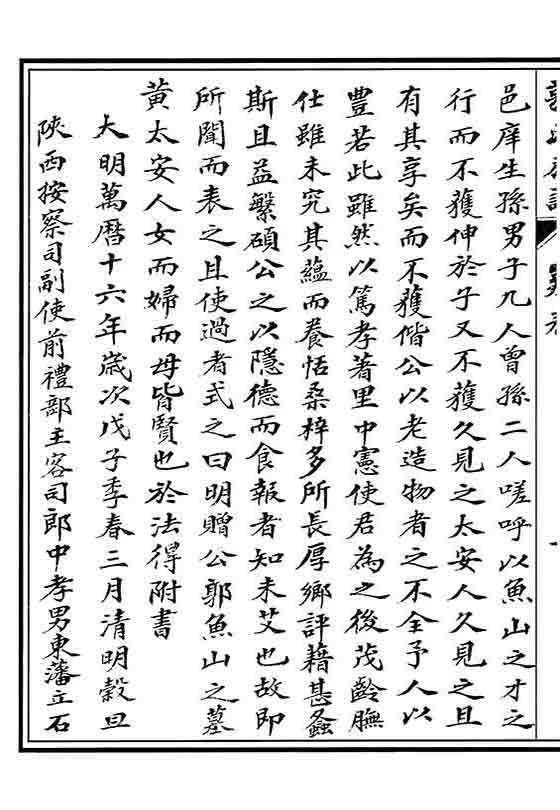 邑庠生孫男子九人曾孫二人嗟呼以魚山之才之
行而不獲伸於子又不獲久見之太安人久見之且
有其享矣而不獲偕公以老造物者之不全予人以
豐若此雖然以篤孝著里中憲使君為之後茂齡膴
仕雖未究其蘊而養恬桑梓多所長厚鄉評藉甚螽
斯且益繁碩公之以隱德而食報者知未艾也故即
所聞而表之且使過者式之曰明贈公郭魚山之墓
黄太安人女而婦而母皆賢也於法得附書
大明萬曆十六年歲次戊子季春三月清明穀旦
陝西按察司副使前禮部主客司郎中孝男東藩立石